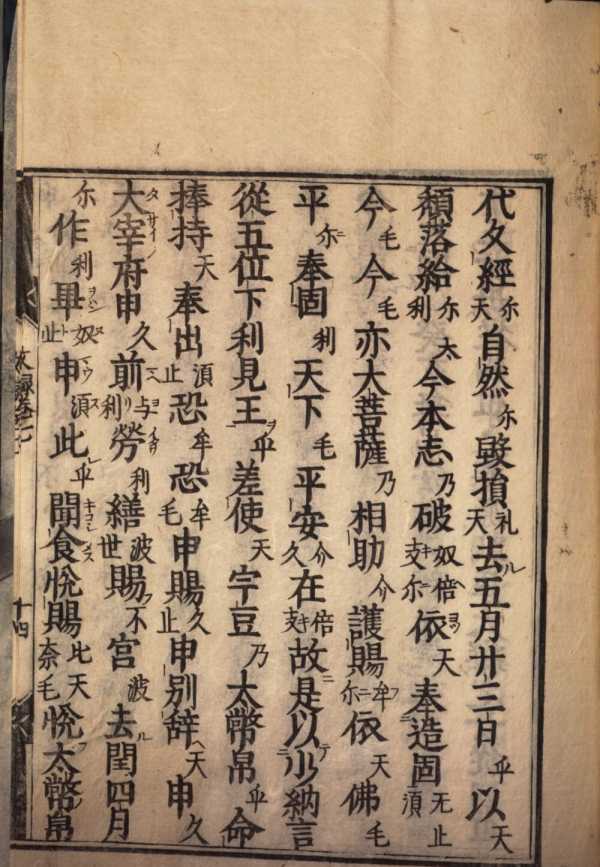 代久經尓天自然尓毀損礼天去ル五月廿三日乎以天
頽落給尓利太今本志乃破奴支倍尓依天奉造固无止須
今毛今毛亦大菩薩乃相助介護賜牟尓依天佛毛
平尓奉固利天下毛平安介久在倍支故是以少納言
從五位下利見王乎差使天宇豆乃大幣帛乎命
捧持天奉出須止恐牟恐牟毛申賜久止申別辞天申久
大宰府申久前与利勞利繕波世賜不宮波去閏四月
尓作利畢奴止申須此乎聞食悦賜比天奈毛悦太幣帛
十四